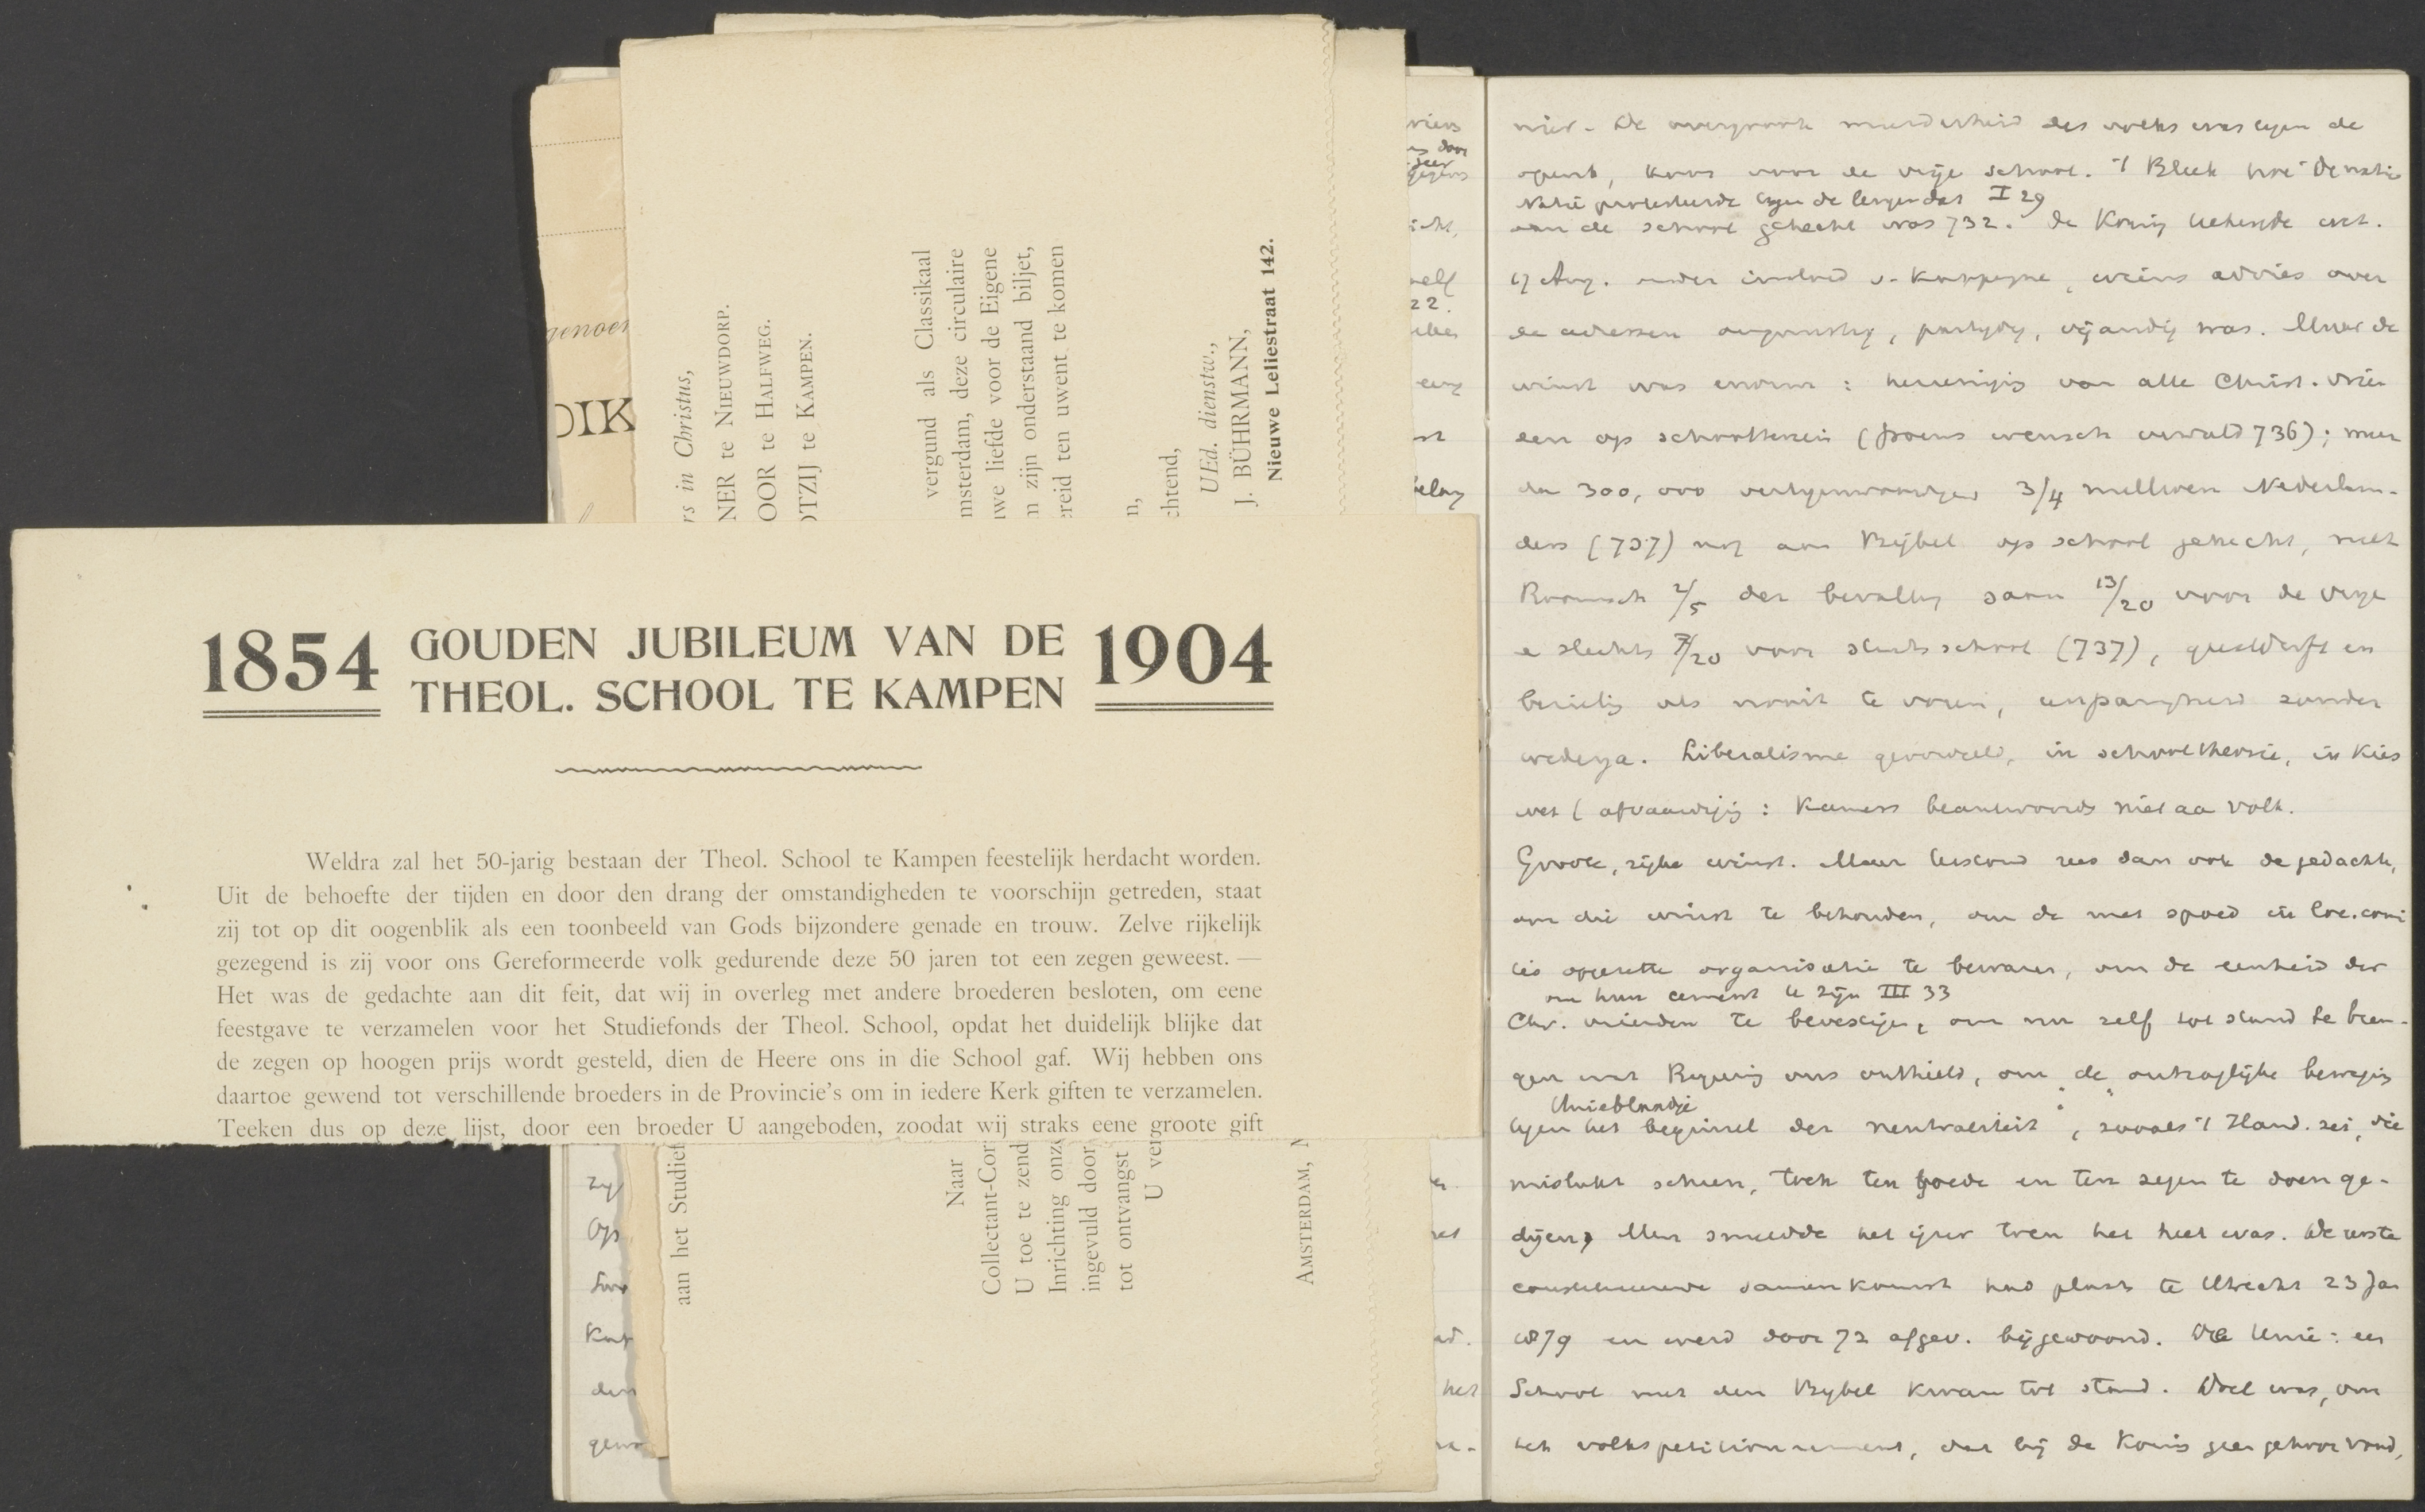 1854 GOUDEN JUBILEUM VAN DE 1904
THEOL. SCHOOL TE KAMPEN
Weldra zal het 50-jarig bestaan der Theol. School te Kampen feestelijk herdacht worden.
Uit de behoefte der tijden en door den drang der omstandigheden te voorschijn getreden, staat
zij tot op dit oogenblik als een toonbeeld van Gods bijzondere genade en trouw. Zelve rijkelijk
gezegend is zij voor ons Gereformeerde volk gedurende deze 50 jaren tot een zegen geweest. —
Het was de gedachte aan dit feit, dat wij in overleg met andere broederen besloten, om eene
feestgave te verzamelen voor het Studiefonds der Theol. School, opdat het duidelijk blijke dat
de zegen op hoogen prijs wordt gesteld, dien de Heere ons in die School gaf. Wij hebben ons
daartoe gewend tot verschillende broeders in de Provincie's om in iedere Kerk giften te verzamelen.
Teeken dus op deze lijst, door een broeder U aangeboden, zoodat wij straks eene groote gift
aan het Studief
rs in Christus,
NER te NIEUWDORP.
OOR te HALFWEG.
OTZIJ te KAMPEN.
Naar
vergund als Classikaal
Collectant-Cor
msterdam, deze circulaire
U toe te zend
uwe liefde voor de Eigene
Inrichting onze
n zijn onderstaand biljet,
ingevuld door
ereid ten uwent te komen
tot ontvangst
U ver
n,
chtend,
UEd. dienstw.,
J. BÜHRMANN,
Nieuwe Leliestraat 142.
AMSTERDAM,
genoe
DIK
zij
Op
den
door
zeer
22.
het
De meerderheid des volks was tegen de
koos voor de vrije school. 't Bleek hoe de natie
Natie protesteerde tegen de leugen dat I 29
aan de school gehecht was 732. De Koning tekende echt.
17 Aug. onder invloed v. Kappeyne, wiens advies over
de adressen ongunstig, partijdig, vijandig was. Maar de
winst was enorm: hereeniging van alle Christ. vrien
den op schoolterrein (Groens wensch vervuld 736); meer
dan 300,000 vertegenwoordigen 3/4 millioen Nederlan-
ders (737) nog aan Bijbel op school gehecht, met
Roomsch 2/5 der bevolking saam 13/20 voor de vrije
e slechts 7/20 voor staatsschool (737), geestdrift en
bezieling als nooit te voren, zonder
wederga. Liberalisme geoordeeld, in schooltheorie, in kies
wet (afvaardiging: Kamers beantwoordt niet aa volk.
Groote, rijke winst. Maar terstond rees dan ook de gedachte,
om die winst te behouden, om de met spoed in loc. comi
tés opgezette organisatie te bewaren, om de eenheid der
om hun cement te zijn III 33
Chr. vrienden te bevestigen, om nu zelf tot stand te bren-
gen wat Regeering ons onthield, om "de ontzaglijke beweging
Unieblaadje
tegen het beginsel der neutraliteit", zooals 't Hand. zei, die
mislukt scheen, toch ten goede en ten zegen te doen ge-
dijen. Men smeedde het ijzer toen het heet was. De eerste
constitueerende samenkomst had plaats te Utrecht 23 Jan
1879 en werd door 72 afgev. bijgewoond. De Unie: een
School met den Bijbel kwam tot stand. Doel was, om
het volkspetitionnement, dat bij de Koning geen gehoor vond,